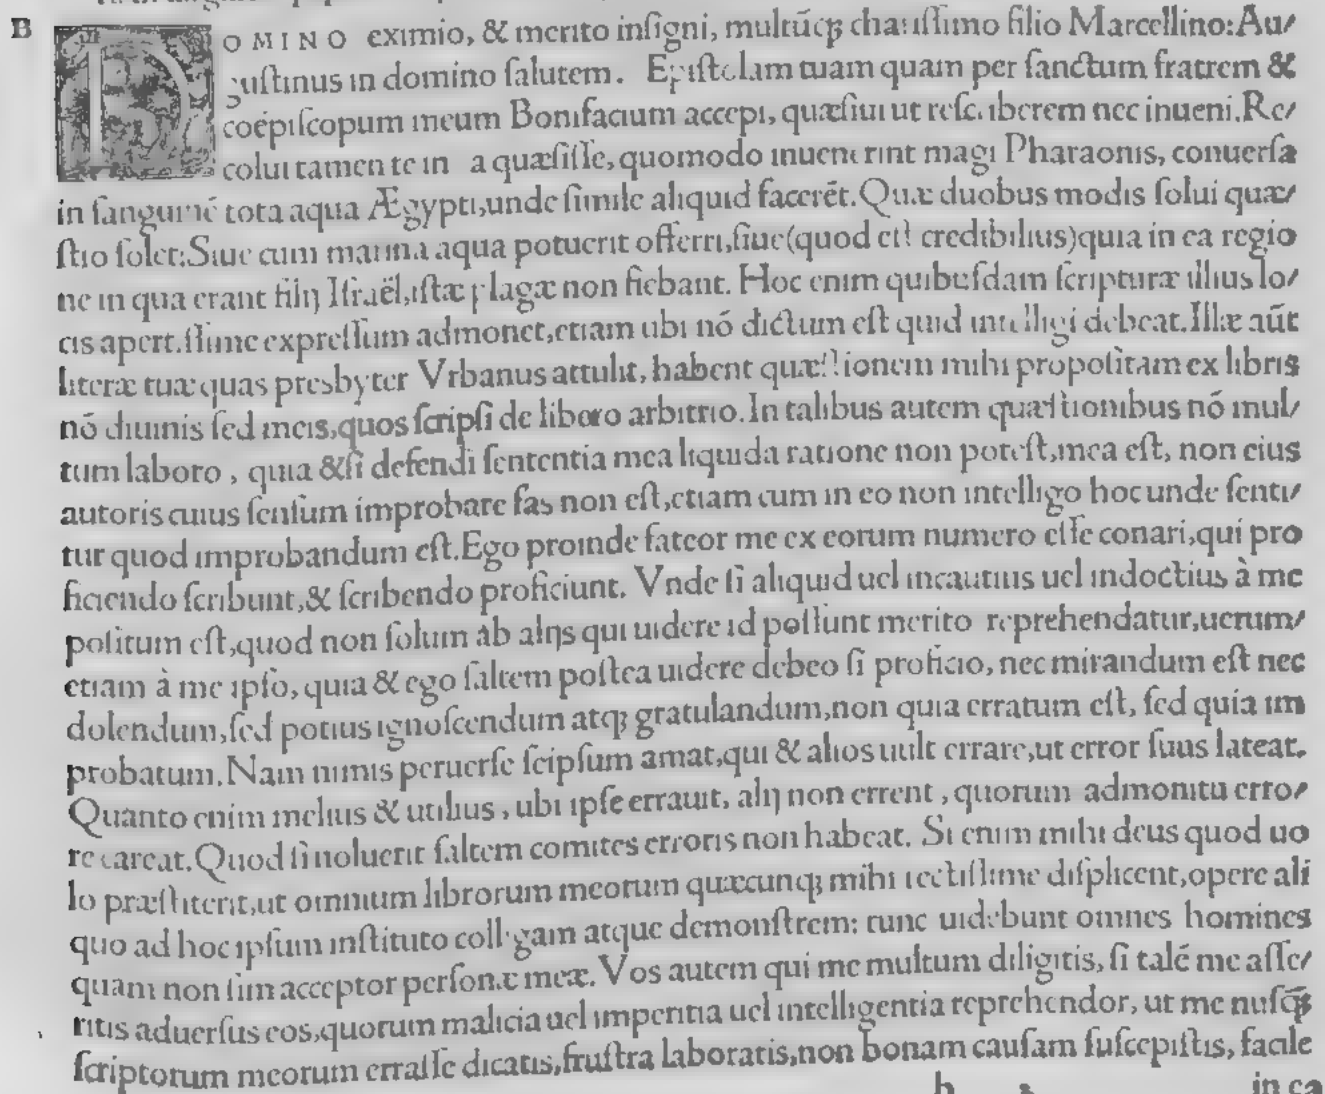 B
DOMINO eximio, & merito insigni, multũq; charissimo filio Marcellino: Au/
gustinus in domino salutem. Epistolam tuam quam per sanctum fratrem &
coëpiscopum meum Bonifacium accepi, quæsiui ut rescriberem nec inueni. Re/
colui tamen te in a quæsisse, quomodo inuenerint magi Pharaonis, conuersa
in sanguinẽ tota aqua Ægypti, unde simile aliquid facerẽt. Quæ duobus modis solui quæ/
stio solet: Siue cum marina aqua potuerit offerri, siue (quod est credibilius) quia in ea regio
ne in qua erant filij Israël, istæ plagæ non fiebant. Hoc enim quibusdam scripturæ illius lo/
cis apertissime expressum admonet, etiam ubi nõ dictum est quid intelligi debeat. Illæ aũt
literæ tuæ quas presbyter Vrbanus attulit, habent quæstionem mihi propositam ex libris
nõ diuinis sed meis, quos scripsi de libero arbitrio. In talibus autem quæstionibus nõ mul/
tum laboro, quia & si defendi sententia mea liquida ratione non potest, mea est, non eius
autoris cuius sensum improbare fas non est, etiam cum in eo non intelligo hoc unde senti/
tur quod improbandum est. Ego proinde fateor me ex eorum numero esse conari, qui pro
ficiendo scribunt, & scribendo proficiunt. Vnde si aliquid uel incautius uel indoctius à me
positum est, quod non solum ab alijs qui uidere id possunt merito reprehendatur, uerum/
etiam à me ipso, quia & ego saltem postea uidere debeo si proficio, nec mirandum est nec
dolendum, sed potius ignoscendum atq; gratulandum, non quia erratum est, sed quia im
probatum. Nam nimis peruerse seipsum amat, qui & alios uult errare, ut error suus lateat.
Quanto enim melius & utilius, ubi ipse errauit, alij non errent, quorum admonitu erro/
re careat. Quod si noluerit saltem comites erroris non habeat. Si enim mihi deus quod uo
lo præstiterit, ut omnium librorum meorum quæcunq; mihi rectissime displicent, opere ali
quo ad hoc ipsum instituto colligam atque demonstrem: tunc uidebunt omnes homines
quam non sim acceptor personæ meæ. Vos autem qui me multum diligitis, si talẽ me asse/
ritis aduersus eos, quorum malicia uel imperitia uel intelligentia reprehendor, ut me nusq̃;
scriptorum meorum errasse dicatis, frustra laboratis, non bonam causam suscepistis, facile
b in ca